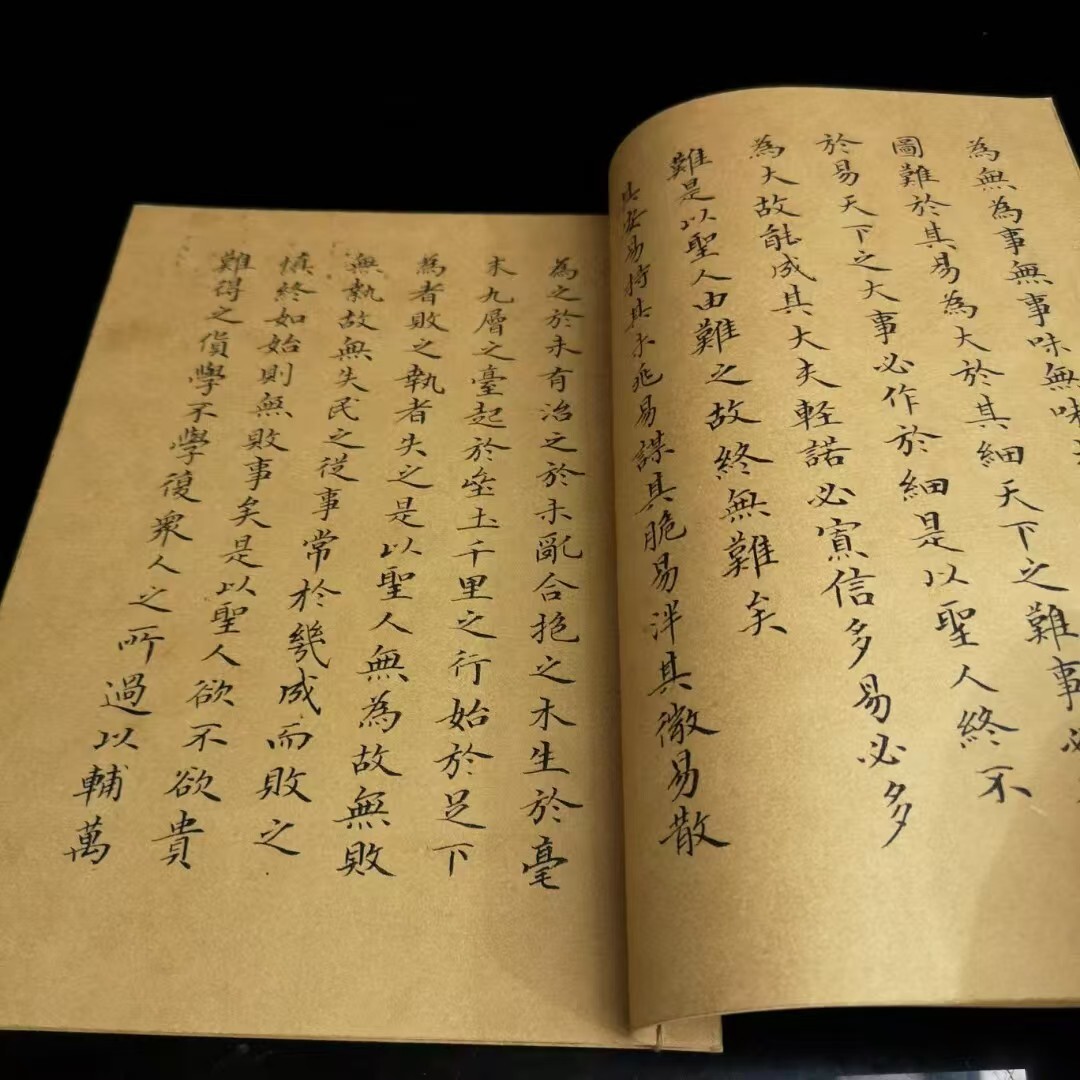 為無為事無事味無味
圖難於其易為大於其細天下之難事必
於易天下之大事必作於細是以聖人終不
為大故能成其大夫輕諾必寡信多易必多
難是以聖人由難之故終無難矣
其安易持其未兆易謀其脆易泮其微易散
為之於未有治之於未亂合抱之木生於毫
末九層之臺起於垒土千里之行始於足下
為者敗之執者失之是以聖人無為故無敗
無執故無失民之從事常於幾成而敗之
慎終如始則無敗事矣是以聖人欲不欲貴
難得之貨學不學復衆人之所過以輔萬